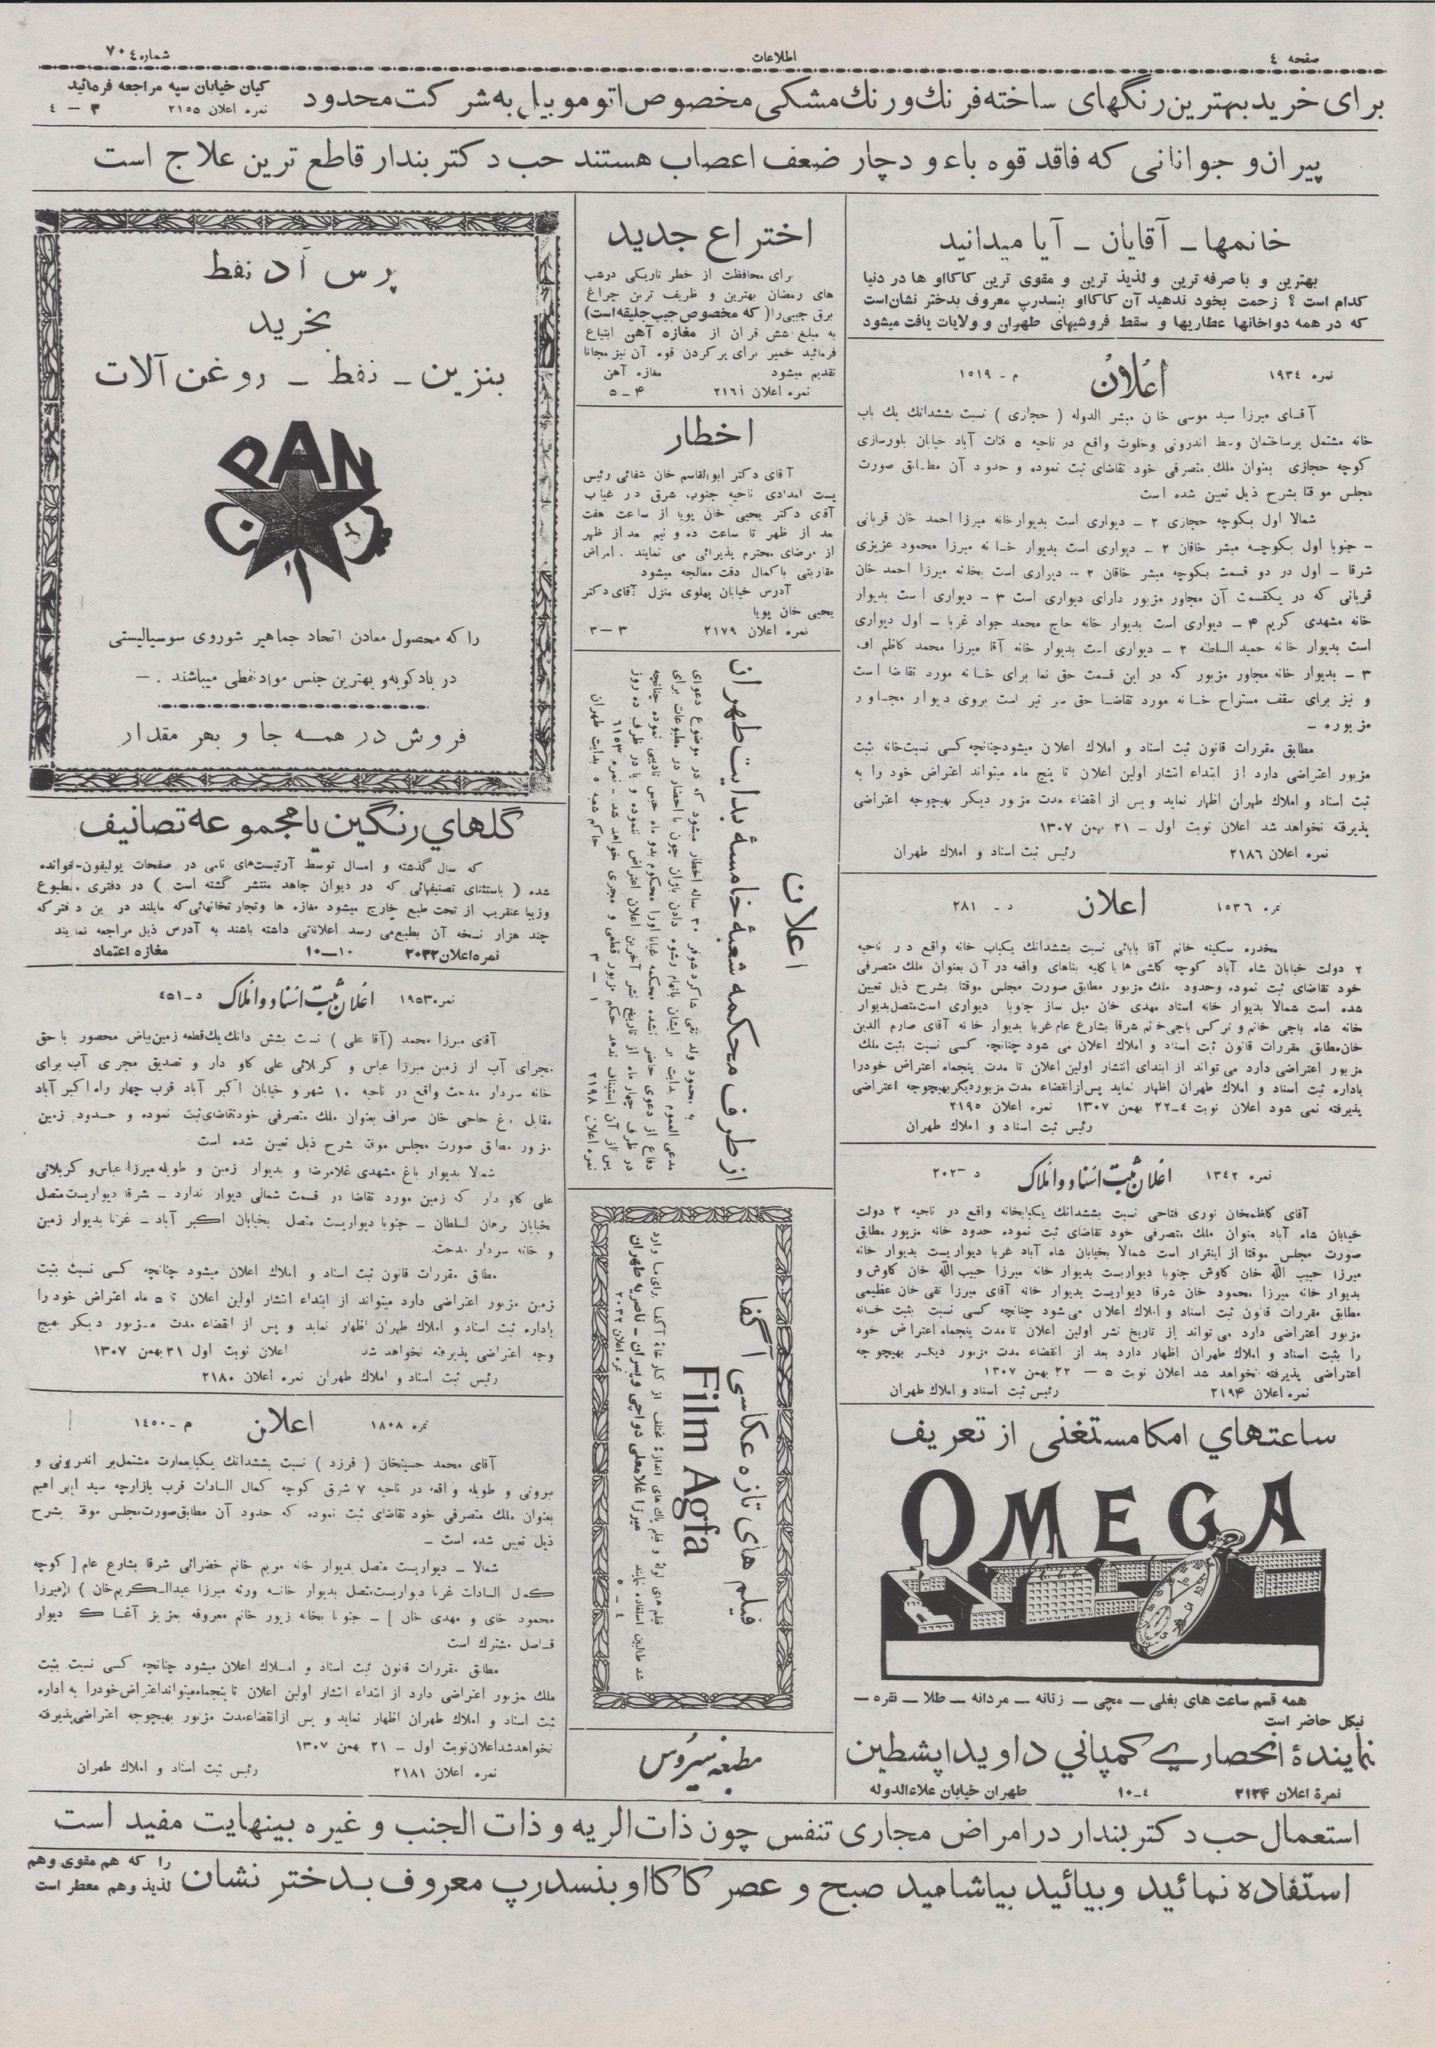 صفحه ٤
اطلاعات
شماره ٧٠٤
برای خرید بهترین رنگهای ساخته فرنك ورنك مشکی مخصوص اتوموبیل به شرکت محدود
کیان خیابان سپه مراجعه فرمائید
نمره اعلان ٢١٥٥ ٣ – ٤
پیران و جوانانی که فاقد قوه باء و دچار ضعف اعصاب هستند حب دکتر بندار قاطع ترین علاج است
خانمها ـ آقایان ـ آیا میدانید
بهترین و با صرفه ترین و لذیذ ترین و مقوی ترین کاکائو ها در دنیا
کدام است ؟ زحمت بخود ندهید آن کاکااو بنسدرپ معروف بدختر نشان است
که در همه دواخانها عطاریها و سقط فروشیهای طهران و ولایات یافت میشود
نمره ١٩٣٤ اعلان م ـ ١٥١٩
آقای میرزا سید موسی خان مبشر الدوله ( حجازی ) نسبت بششدانك یك باب
خانه مشتمل برساختمان وسط اندرونی وخلوت واقع در ناحیه ٥ قنات آباد خیابان بلورسازی
کوچه حجازی بعنوان ملك متصرفی خود تقاضای ثبت نموده و حدود آن مطابق صورت
مجلس موقتا بشرح ذیل تعیین شده است
شمالا اول بکوچه حجازی ٢ – دیواری است بدیوارخانه میرزا احمد خان قربانی
– جنوبا اول بکوچه مبشر خاقان ٢ – دیواری است بدیوار خانه میرزا محمود عزیزی
شرقا – اول در دو قسمت بکوچه مبشر خاقان ٢ – دیواری است بخانه میرزا احمد خان
قربانی که در یکقسمت آن مجاور مزبور دارای دیواری است ٣ – دیواری است بدیوار
خانه مشهدی کریم ۴ – دیواری است بدیوار خانه حاج محمد جواد غربا – اول دیواری
است بدیوار خانه حمید السلطنه ٢ – دیواری است بدیوار خانه آقا میرزا محمد کاظم
٣ – بدیوار خانه مجاور مزبور که در این قسمت حق نما برای خانه مورد تقاضا است
و نیز برای سقف مستراح خانه مورد تقاضا حق سر تیر است بروی دیوار مجاور
مزبوره –
مطابق مقررات قانون ثبت اسناد و املاك اعلان میشود چنانچه کسی نسبت خانه بثبت
مزبور اعتراضی دارد از ابتداء انتشار اولین اعلان تا پنج ماه میتواند اعتراض خود را به
ثبت اسناد و املاك طهران اظهار نماید و پس از انقضاء مدت مزبور دیگر بهیچوجه اعتراضی
پذیرفته نخواهد شد اعلان نوبت اول – ٢١ بهمن ١٣٠٧
نمره اعلان ٢١٨٦ رئیس ثبت اسناد و املاك طهران
نمره ١٥٣٦ اعلان د – ٢٨١
مخدره سکینه خانم آقا بابائی نسبت بششدانك یکباب خانه واقع در ناحیه
٢ دولت خیابان شاه آباد کوچه کاشی ها با کلیه بناهای واقعه در آن بعنوان ملك متصرفی
خود تقاضای ثبت نموده وحدود ملك مزبور مطابق صورت مجلس موقتا بشرح ذیل تعیین
شده است شمالا بدیوار خانه استاد مهدی خان مبل ساز جنوبا دیواری است متصل بدیوار
خانه شاه باجی خانم و نرکس باجی خانم شرقا بشارع عام غربا بدیوار خانه آقای صارم الدین
خان مطابق مقررات قانون ثبت اسناد و املاك اعلان می شود چنانچه کسی نسبت بثبت ملك
مزبور اعتراضی دارد می تواند از ابتدای انتشار اولین اعلان تا مدت پنجماه اعتراض خودرا
باداره ثبت اسناد و املاك طهران اظهار نماید پس از انقضاء مدت مزبور دیگر بهیچوجه اعتراضی
پذیرفته نمی شود اعلان نوبت ٤ – ٢٢ بهمن ١٣٠٧ نمره اعلان ٢١٩٥
رئیس ثبت اسناد و املاك طهران
نمره ١٣٤٢ اعلان ثبت اسناد و املاك د – ٢٠٢
آقای کاظمخان نوری فتاحی نسبت بششدانك یکبابخانه واقع در ناحیه ٢ دولت
خیابان شاه آباد بعنوان ملك متصرفی خود تقاضای ثبت نموده حدود خانه مزبور مطابق
صورت مجلس موقتا از اینقرار است شمالا بخیابان شاه آباد غربا دیواریست بدیوار خانه
میرزا حبیب الله خان کاوش جنوبا دیواریست بدیوار خانه میرزا حبیب الله خان کاوش و
بدیوار خانه میرزا محمود خان شرقا دیواریست بدیوار خانه آقای میرزا تقی خان عظیمی
مطابق مقررات قانون ثبت اسناد و املاك اعلان می شود چنانچه کسی نسبت بثبت خانه
مزبور اعتراضی دارد می تواند از تاریخ نشر اولین اعلان تا مدت پنجماه اعتراض خود
را بثبت اسناد و املاك طهران اظهار دارد بعد از انقضاء مدت مزبور دیگر بهیچوجه
اعتراضی پذیرفته نخواهد شد اعلان نوبت ٥ – ٢٢ بهمن ١٣٠٧
نمره اعلان ٢١٩۴ رئیس ثبت اسناد و املاك طهران
ساعتهای امکا مستغنی از تعریف
OMEGA
همه قسم ساعت های بغلی – مچی – زنانه – مردانه – طلا – نقره –
نیکل حاضر است
نمایندهٔ انحصاری کمپانی داوید اپشطین
نمرۀ اعلان ٢١٢۴ ٤ـ١٠ طهران خیابان علاءالدوله
اختراع جدید
برای محافظت از خطر تاریکی درشب
های رمضان بهترین و ظریف ترین چراغ
برق جیبی را( که مخصوص جیب جلیقه است)
به مبلغ شش قران از مغازه آهن ابتیاع
فرمائید خمیر برای پرکردن قوه آن نیز مجانا
تقدیم میشود مغازه آهن
نمره اعلان ٢١٦١ ۴ – ٥
اخطار
آقای دکتر ابوالقاسم خان شفائی رئیس
پست امدادی ناحیه جنوب شرق در غیاب
آقای دکتر یحیی خان پویا از ساعت هفت
بعد از ظهر تا ساعت ده و نیم بعد از ظهر
از مرضای محترم پذیرائی می نمایند . امراض
مقاربتی باکمال دقت معالجه میشود
آدرس خیابان پهلوی منزل آقای دکتر
یحیی خان پویا
نمره اعلان ٢١٧٩ ٣ – ٣
اعلان
از طرف محکمه شعبهٔ خامسهٔ بدایت طهران
به محمود ولد تقی شاگرد شوفر ٣٠ ساله اخطار میشود که در موضوع دعوای
مدعی العموم بدایت بر ایشان باتهام رشوه دادن بآژان چون با احضار در مطبوعات برای
دفاع از دعوی حاضر نشده محکمه غیابا اورا محکوم بدو ماه حبس تادیبی نموده چنانچه
در ظرف چهار ماه از تاریخ نشر آخرین اعلان اعتراض ننموده و یا در ظرف ده روز
پس از آن استیناف ندهد حکم مزبور قطعی و مجری خواهد شد – نمره ٦١٥٣
نمره اعلان ٢١٩٨ ١ – ٣ حاکم شعبه ٥ بدایت طهران
فیلم های تازه عکاسی آگفا
Film Agfa
فیلم های لوله و فیلم پاك های اندازهٔ مختلف از کارخانهٔ آگفا برای ما وارد
شد طالبین استفاده نمایند میرزا غلامعلی دواچی و پسران – ناصریه طهران
٤ – ٥ نمره اعلان ٢٠٣٢
مطبعه سیروس
پرس آذ نفط
بخرید
بنزین ـ نفط ـ روغن آلات
را که محصول معادن اتحاد جماهیر شوروی سوسیالیستی
در بادکوبه و بهترین جنس مواد نفطی میباشند . –
فروش در همه جا و بهر مقدار
گلهای رنگین یا مجموعه تصانیف
که سال گذشته و امسال توسط آرتیست‌های نامی در صفحات پولیفون خوانده
شده ( باستثنای تصنیفهائی که در دیوان جاهد منتشر گشته است ) در دفتری مطبوع
وزیبا عنقریب از تحت طبع خارج میشود مغازه ها وتجارتخانهائی که مایلند در این دفتر که
چند هزار نسخه آن بطبع می رسد اعلاناتی داشته باشند به آدرس ذیل مراجعه نمایند
نمره اعلان ٢٠٣٢ ١٠ــ١٠ مغازه اعتماد
نمره ١٩٥٣ اعلان ثبت اسناد و املاك د – ٤٥١
آقای میرزا محمد (آقا علی ) نسبت بشش دانك یك قطعه زمین بیاض محصور با حق
مجرای آب از زمین میرزا عباس و کربلائی علی کاو دار و تصدیق مجری آب برای
خانه سردار مدحت واقع در ناحیه ١٠ شهرنو خیابان اکبر آباد قرب چهار راه اکبر آباد
مقابل باغ حاجی خان صراف بعنوان ملك متصرفی خودتقاضای ثبت نموده و حدود زمین
مزبور مطابق صورت مجلس موقتا شرح ذیل تعیین شده است
شمالا بدیوار باغ مشهدی غلامرضا و بدیوار زمین و طویله میرزا عباس و کربلائی
علی کاو دار که زمین مورد تقاضا در قسمت شمالی دیوار ندارد – شرقا دیواریست متصل
بخیابان برهان السلطان – جنوبا دیواریست متصل بخیابان اکبر آباد – غربا بدیوار زمین
و خانه سردار مدحت
مطابق مقررات قانون ثبت اسناد و املاك اعلان میشود چنانچه کسی نسبت بثبت
زمین مزبور اعتراضی دارد میتواند از ابتداء انتشار اولین اعلان تا ٥ ماه اعتراض خود را
باداره ثبت اسناد و املاك طهران اظهار نماید و پس از انقضاء مدت مزبور دیگر بهیچ
وجه اعتراضی پذیرفته نخواهد شد اعلان نوبت اول ٢١ بهمن ١٣٠٧
رئیس ثبت اسناد و املاك طهران نمره اعلان ٢١٨٠
نمره ١٨٠٨ اعلان م – ١٤٥٠
آقای محمد حسینخان ( فرزد ) نسبت بششدانك یکبابعمارت مشتمل بر اندرونی و
بیرونی و طویله واقعه در ناحیه ٧ شرق کوچه کمال السادات قرب بازارچه سید ابراهیم
بعنوان ملك متصرفی خود تقاضای ثبت نموده که حدود آن مطابق صورت مجلس موقتا بشرح
ذیل تعیین شده است –
شمالا – دیواریست متصل بدیوار خانه مریم خانم خضرائی شرقا بشارع عام [ کوچه
کمال السادات غربا دیواریست متصل بدیوار خانه ورثه میرزا عبدالکریم خان ) [میرزا
محمود خان و مهدی خان ] – جنوبا بخانه زیور خانم معروفه بعزیز آغا که دیوار
فاصل مشترك است
مطابق مقررات قانون ثبت اسناد و املاك اعلان میشود چنانچه کسی نسبت بثبت
ملك مزبور اعتراضی دارد از ابتداء انتشار اولین اعلان تا پنجماه میتواند اعتراض خودرا به اداره
ثبت اسناد و املاك طهران اظهار نماید و پس از انقضاء مدت مزبور بهیچوجه اعتراضی پذیرفته
نخواهد شد اعلان نوبت اول – ٢١ بهمن ١٣٠٧
نمره اعلان ٢١٨١ رئیس ثبت اسناد و املاك طهران
استعمال حب دکتر بندار در امراض مجاری تنفس چون ذات الریه و ذات الجنب و غیره بینهایت مفید است
استفاده نمائید و بیائید بیاشامید صبح و عصر کاکااو بنسدرپ معروف بدختر نشان
را که هم مقوی وهم
لذیذ وهم معطر است